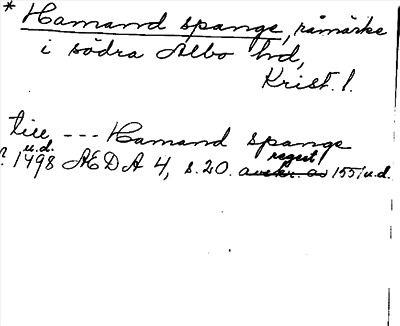 * Hamand spange, råmärke
i södra Albo hd,
Krist. l.
till --- Hamand spange
? 1498 u.d. ÆDA 4, s. 20. avskr. av regest 1551 u.d.